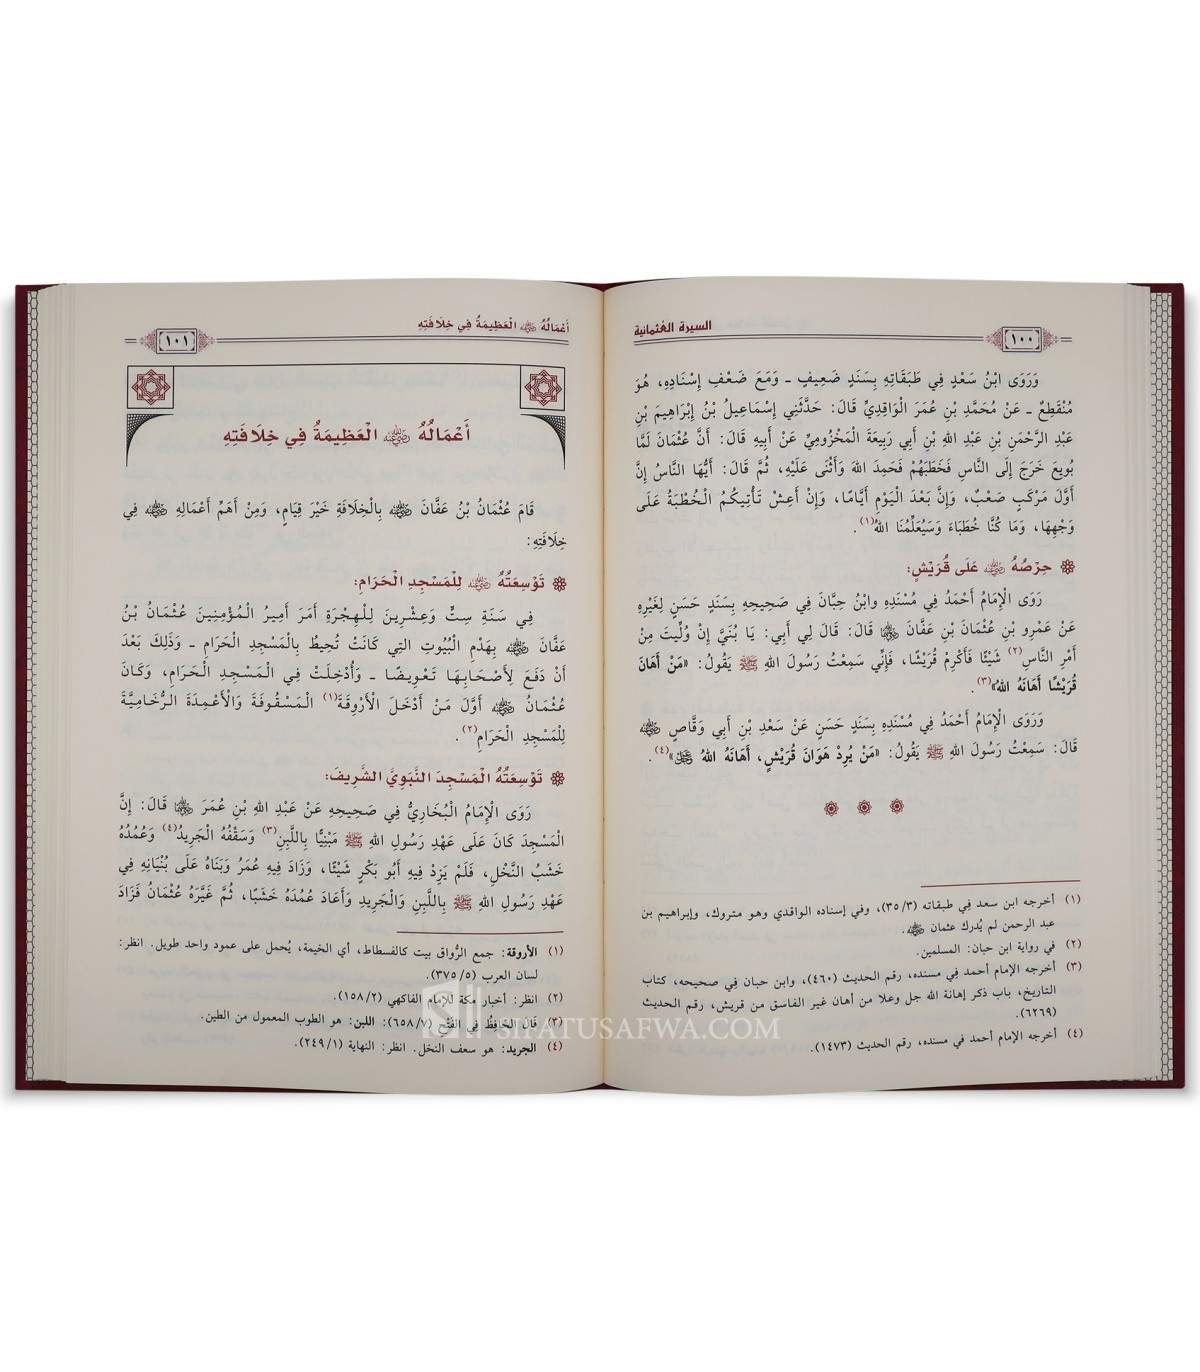 السيرة العثمانية
١٠٠
وَرَوَى ابْنُ سَعْدٍ فِي طَبَقَاتِهِ بِسَنَدٍ ضَعِيفٍ ـ وَمَعَ ضَعْفِ إِسْنَادِهِ، هُوَ
مُنْقَطِعٌ ـ عَنْ مُحَمَّدِ بْنِ عُمَرَ الْوَاقِدِيِّ قَالَ: حَدَّثَنِي إِسْمَاعِيلُ بْنُ إِبْرَاهِيمَ بْنِ
عَبْدِ الرَّحْمَنِ بْنِ عَبْدِ اللهِ بْنِ أَبِي رَبِيعَةَ الْمَخْزُومِيِّ عَنْ أَبِيهِ قَالَ: أَنَّ عُثْمَانَ لَمَّا
بُويِعَ خَرَجَ إِلَى النَّاسِ فَخَطَبَهُمْ فَحَمِدَ اللهَ وَأَثْنَى عَلَيْهِ، ثُمَّ قَالَ: أَيُّهَا النَّاسُ إِنَّ
أَوَّلَ مَرْكَبٍ صَعْبٌ، وَإِنَّ بَعْدَ الْيَوْمِ أَيَّامًا، وَإِنْ أَعِشْ تَأْتِيكُمُ الْخُطْبَةُ عَلَى
وَجْهِهَا، وَمَا كُنَّا خُطَبَاءَ وَسَيُعَلِّمُنَا اللهُ(١).
حِرْصُهُ ﵁ عَلَى قُرَيْشٍ:
رَوَى الْإِمَامُ أَحْمَدُ فِي مُسْنَدِهِ وابْنُ حِبَّانَ فِي صَحِيحِهِ بِسَنَدٍ حَسَنٍ لِغَيْرِهِ
عَنْ عَمْرِو بْنِ عُثْمَانَ بْنِ عَفَّانَ ﵄ قَالَ: قَالَ لِي أَبِي: يَا بُنَيَّ إِنْ وُلِّيتَ مِنْ
أَمْرِ النَّاسِ(٢) شَيْئًا فَأَكْرِمْ قُرَيْشًا، فَإِنِّي سَمِعْتُ رَسُولَ اللهِ ﷺ يَقُولُ: «مَنْ أَهَانَ
قُرَيْشًا أَهَانَهُ اللهُ»(٣).
وَرَوَى الْإِمَامُ أَحْمَدُ فِي مُسْنَدِهِ بِسَنَدٍ حَسَنٍ عَنْ سَعْدِ بْنِ أَبِي وَقَّاصٍ ﵁
قَالَ: سَمِعْتُ رَسُولَ اللهِ ﷺ يَقُولُ: «مَنْ يُرِدْ هَوَانَ قُرَيْشٍ، أَهَانَهُ اللهُ ﷿»(٤).
(١) أخرجه ابن سعد في طبقاته (٣/ ٣٥)، وفي إسناده الواقدي وهو متروك، وإبراهيم بن
عبد الرحمن لم يُدرك عثمان ﵁.
(٢) في رواية ابن حبان: المسلمين.
(٣) أخرجه الإمام أحمد في مسنده، رقم الحديث (٤٦٠)، وابن حبان في صحيحه، كتاب
التاريخ، باب ذكر إهانة الله جل وعلا من أهان غير الفاسق من قريش، رقم الحديث
(٦٢٦٩).
(٤) أخرجه الإمام أحمد في مسنده، رقم الحديث (١٤٧٣).
أَعْمَالُهُ ﵁ الْعَظِيمَةُ فِي خِلَافَتِهِ
١٠١
أَعْمَالُهُ ﵁ الْعَظِيمَةُ فِي خِلَافَتِهِ
قَامَ عُثْمَانُ بْنُ عَفَّانَ ﵁ بِالْخِلَافَةِ خَيْرَ قِيَامٍ، وَمِنْ أَهَمِّ أَعْمَالِهِ ﵁ فِي
خِلَافَتِهِ:
تَوْسِعَتُهُ ﵁ لِلْمَسْجِدِ الْحَرَامِ:
فِي سَنَةِ سِتٍّ وَعِشْرِينَ لِلْهِجْرَةِ أَمَرَ أَمِيرُ الْمُؤْمِنِينَ عُثْمَانُ بْنُ
عَفَّانَ ﵁ بِهَدْمِ الْبُيُوتِ التِي كَانَتْ تُحِيطُ بِالْمَسْجِدِ الْحَرَامِ ـ وَذَلِكَ بَعْدَ
أَنْ دَفَعَ لِأَصْحَابِهَا تَعْوِيضًا ـ وَأُدْخِلَتْ فِي الْمَسْجِدِ الْحَرَامِ، وَكَانَ
عُثْمَانُ ﵁ أَوَّلَ مَنْ أَدْخَلَ الْأَرْوِقَةَ(١) الْمَسْقُوفَةَ وَالْأَعْمِدَةَ الرُّخَامِيَّةَ
لِلْمَسْجِدِ الْحَرَامِ(٢).
تَوْسِعَتُهُ الْمَسْجِدَ النَّبَوِيَّ الشَّرِيفَ:
رَوَى الْإِمَامُ الْبُخَارِيُّ فِي صَحِيحِهِ عَنْ عَبْدِ اللهِ بْنِ عُمَرَ ﵄ قَالَ: إِنَّ
الْمَسْجِدَ كَانَ عَلَى عَهْدِ رَسُولِ اللهِ ﷺ مَبْنِيًّا بِاللَّبِنِ(٣) وَسَقْفُهُ الْجَرِيدُ(٤) وَعُمُدُهُ
خَشَبُ النَّخْلِ، فَلَمْ يَزِدْ فِيهِ أَبُو بَكْرٍ شَيْئًا، وَزَادَ فِيهِ عُمَرُ وَبَنَاهُ عَلَى بُنْيَانِهِ فِي
عَهْدِ رَسُولِ اللهِ ﷺ بِاللَّبِنِ وَالْجَرِيدِ وَأَعَادَ عُمُدَهُ خَشَبًا، ثُمَّ غَيَّرَهُ عُثْمَانُ فَزَادَ
(١) الأروقة: جمع الرُّواق بيت كالفسطاط، أي الخيمة، يُحمل على عمود واحد طويل. انظر:
لسان العرب (٥/ ٣٧٥).
(٢) انظر: أخبار مكة للإمام الفاكهي (٢/ ١٥٨).
(٣) قَالَ الحَافِظُ في الفَتْحِ (٧/ ٦٥٨): اللبن: هو الطوب المعمول من الطين.
(٤) الجريد: هو سعف النخل. انظر: النهاية (١/ ٢٤٩).
SIFATUSAFWA.COM